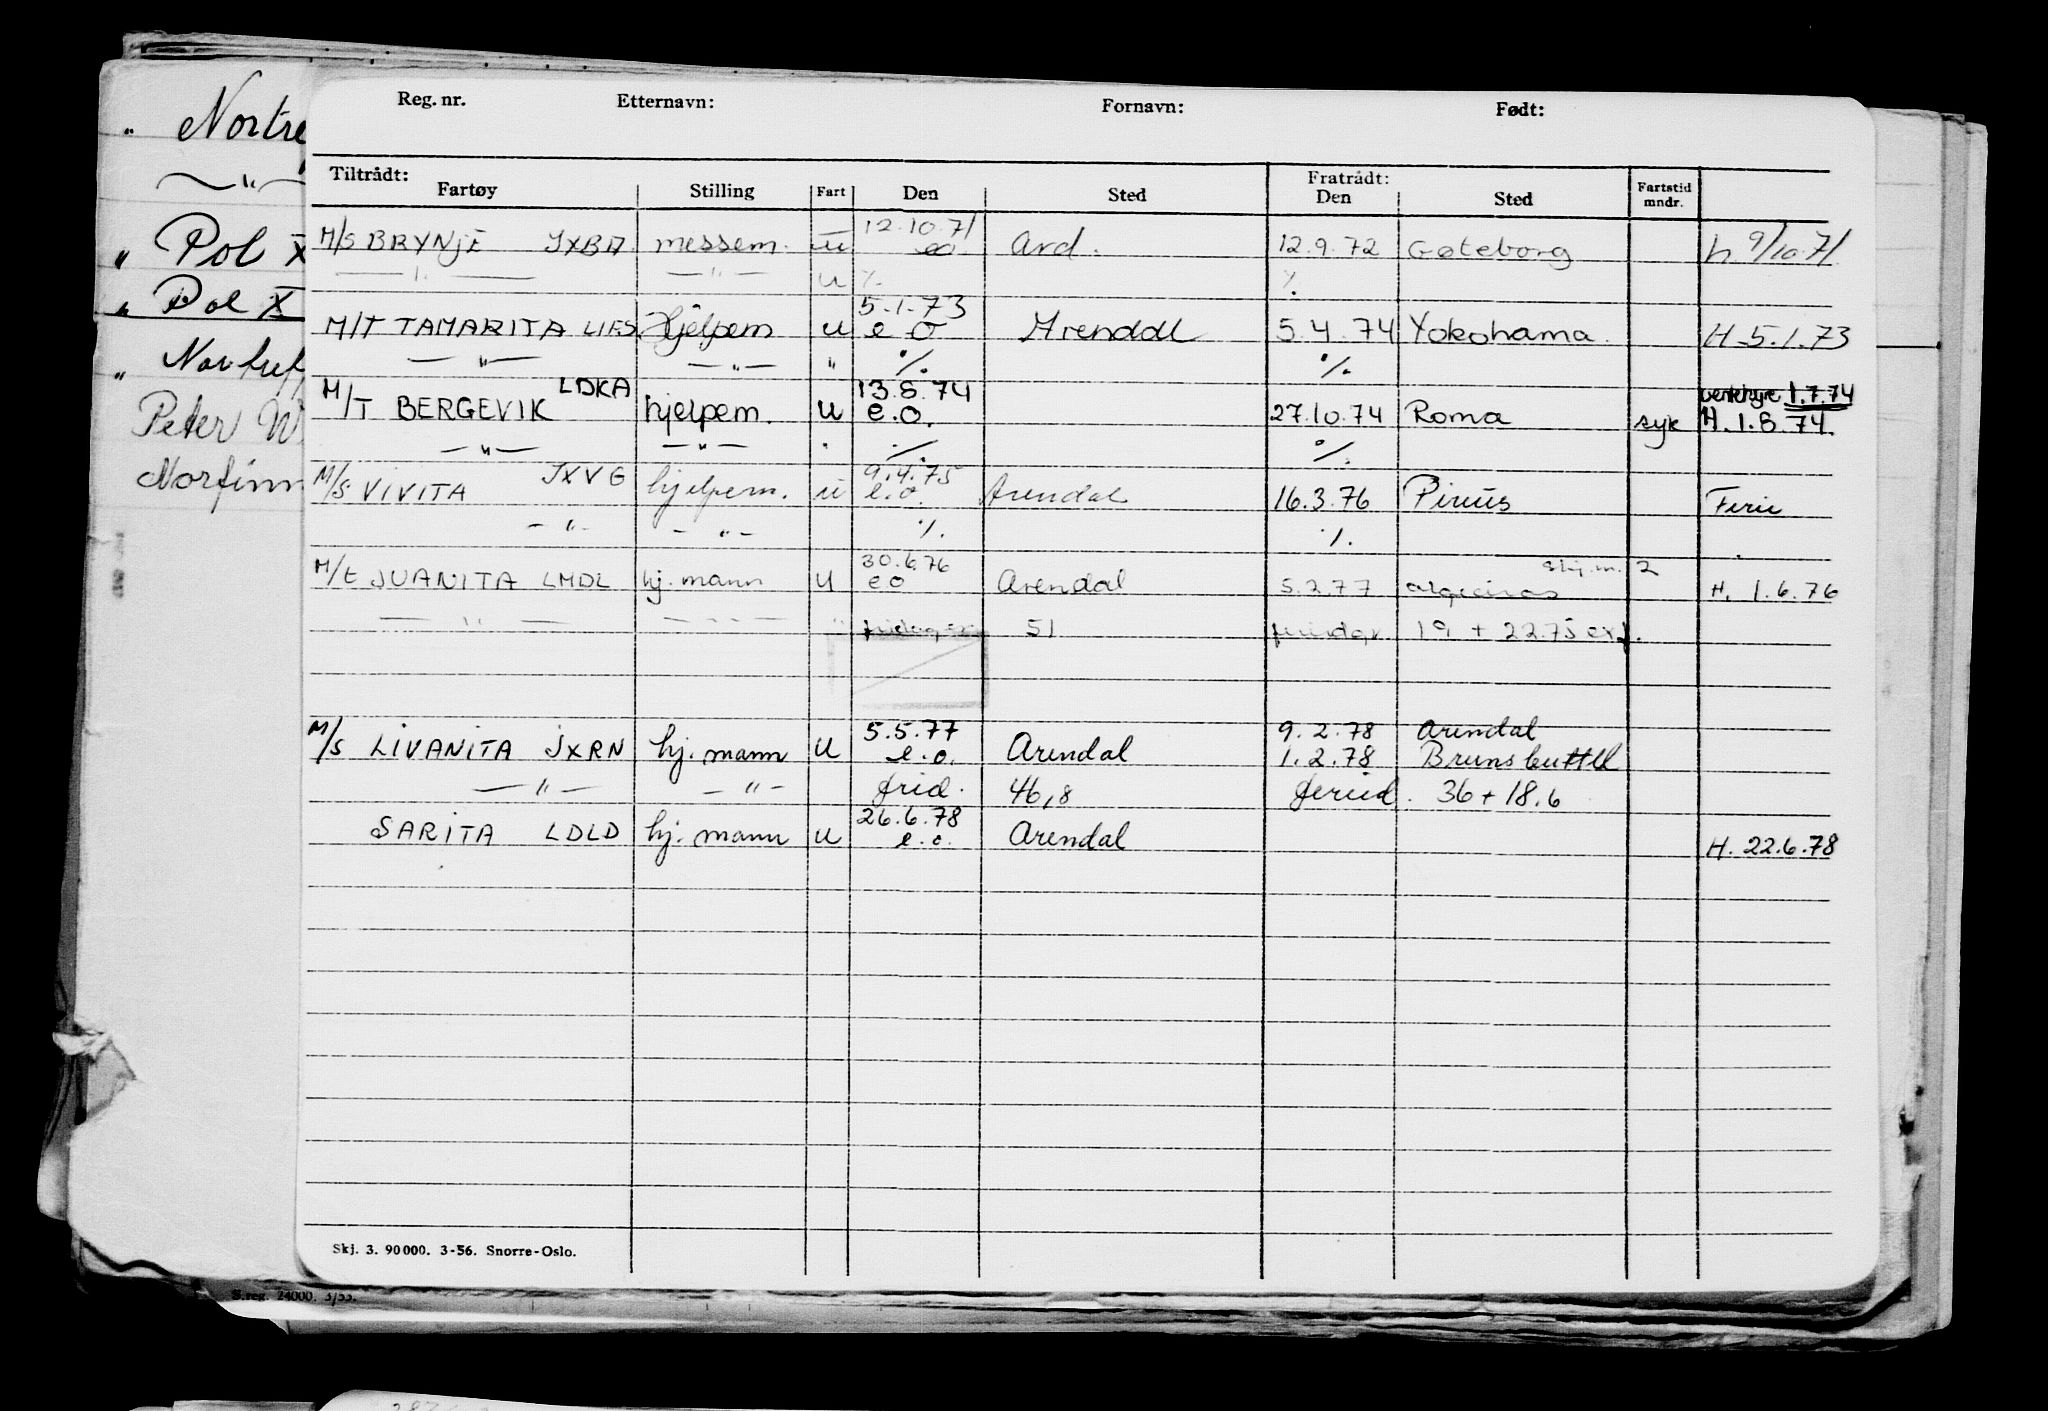 Reg. nr. Etternavn: Fornavn: Født:
Tiltrådt: Fratrådt:
Fartøy Stilling Fart Den Sted Den Sted Fartstid mndr.
12.10.71
M/S BRYNJE JXBD. messem. u eo. Ard. 12.9.72 Gøteborg h. 9/10.71
— " — — " — u ./. ./.
5.1.73
M/T TAMARITA LIES Hjelpem u e o Arendal 5.4.74 Yokohama. H. 5.1.73
— " — — " — " ./. ./.
LDKA 13.8.74 1.7.74
M/T BERGEVIK hjelpem. u e.o. 27.10.74 Roma syk H. 1.8.74.
— " — — " — " ./. ./.
JXVG 9.4.75
M/S VIVITA hjelpem. u e.o. Arendal 16.3.76 Pireus Ferie
— " — — " — ./. ./.
30.6.76
M/T JUANITA LMDL hj. mann u e o Arendal 5.2.77 Algeciras 2 H. 1.6.76
— " — — " — " 51 19 + 22.75
5.5.77 9.2.78 Arendal
M/S LIVANITA JXRN hj. mann u e.o. Arendal 1.2.78 Brunsbuttel
— " — — " — frid. 46,8 feried. 36 + 18.6
26.6.78
SARITA LDLD hj. mann u e.o. Arendal H. 22.6.78
Skj. 3. 90000. 3-56. Snorre-Oslo.
" Nortre
— " —
" Pol X
" Pol X
"
Peter W
Norfinn
S.reg. 24000. 3/53.